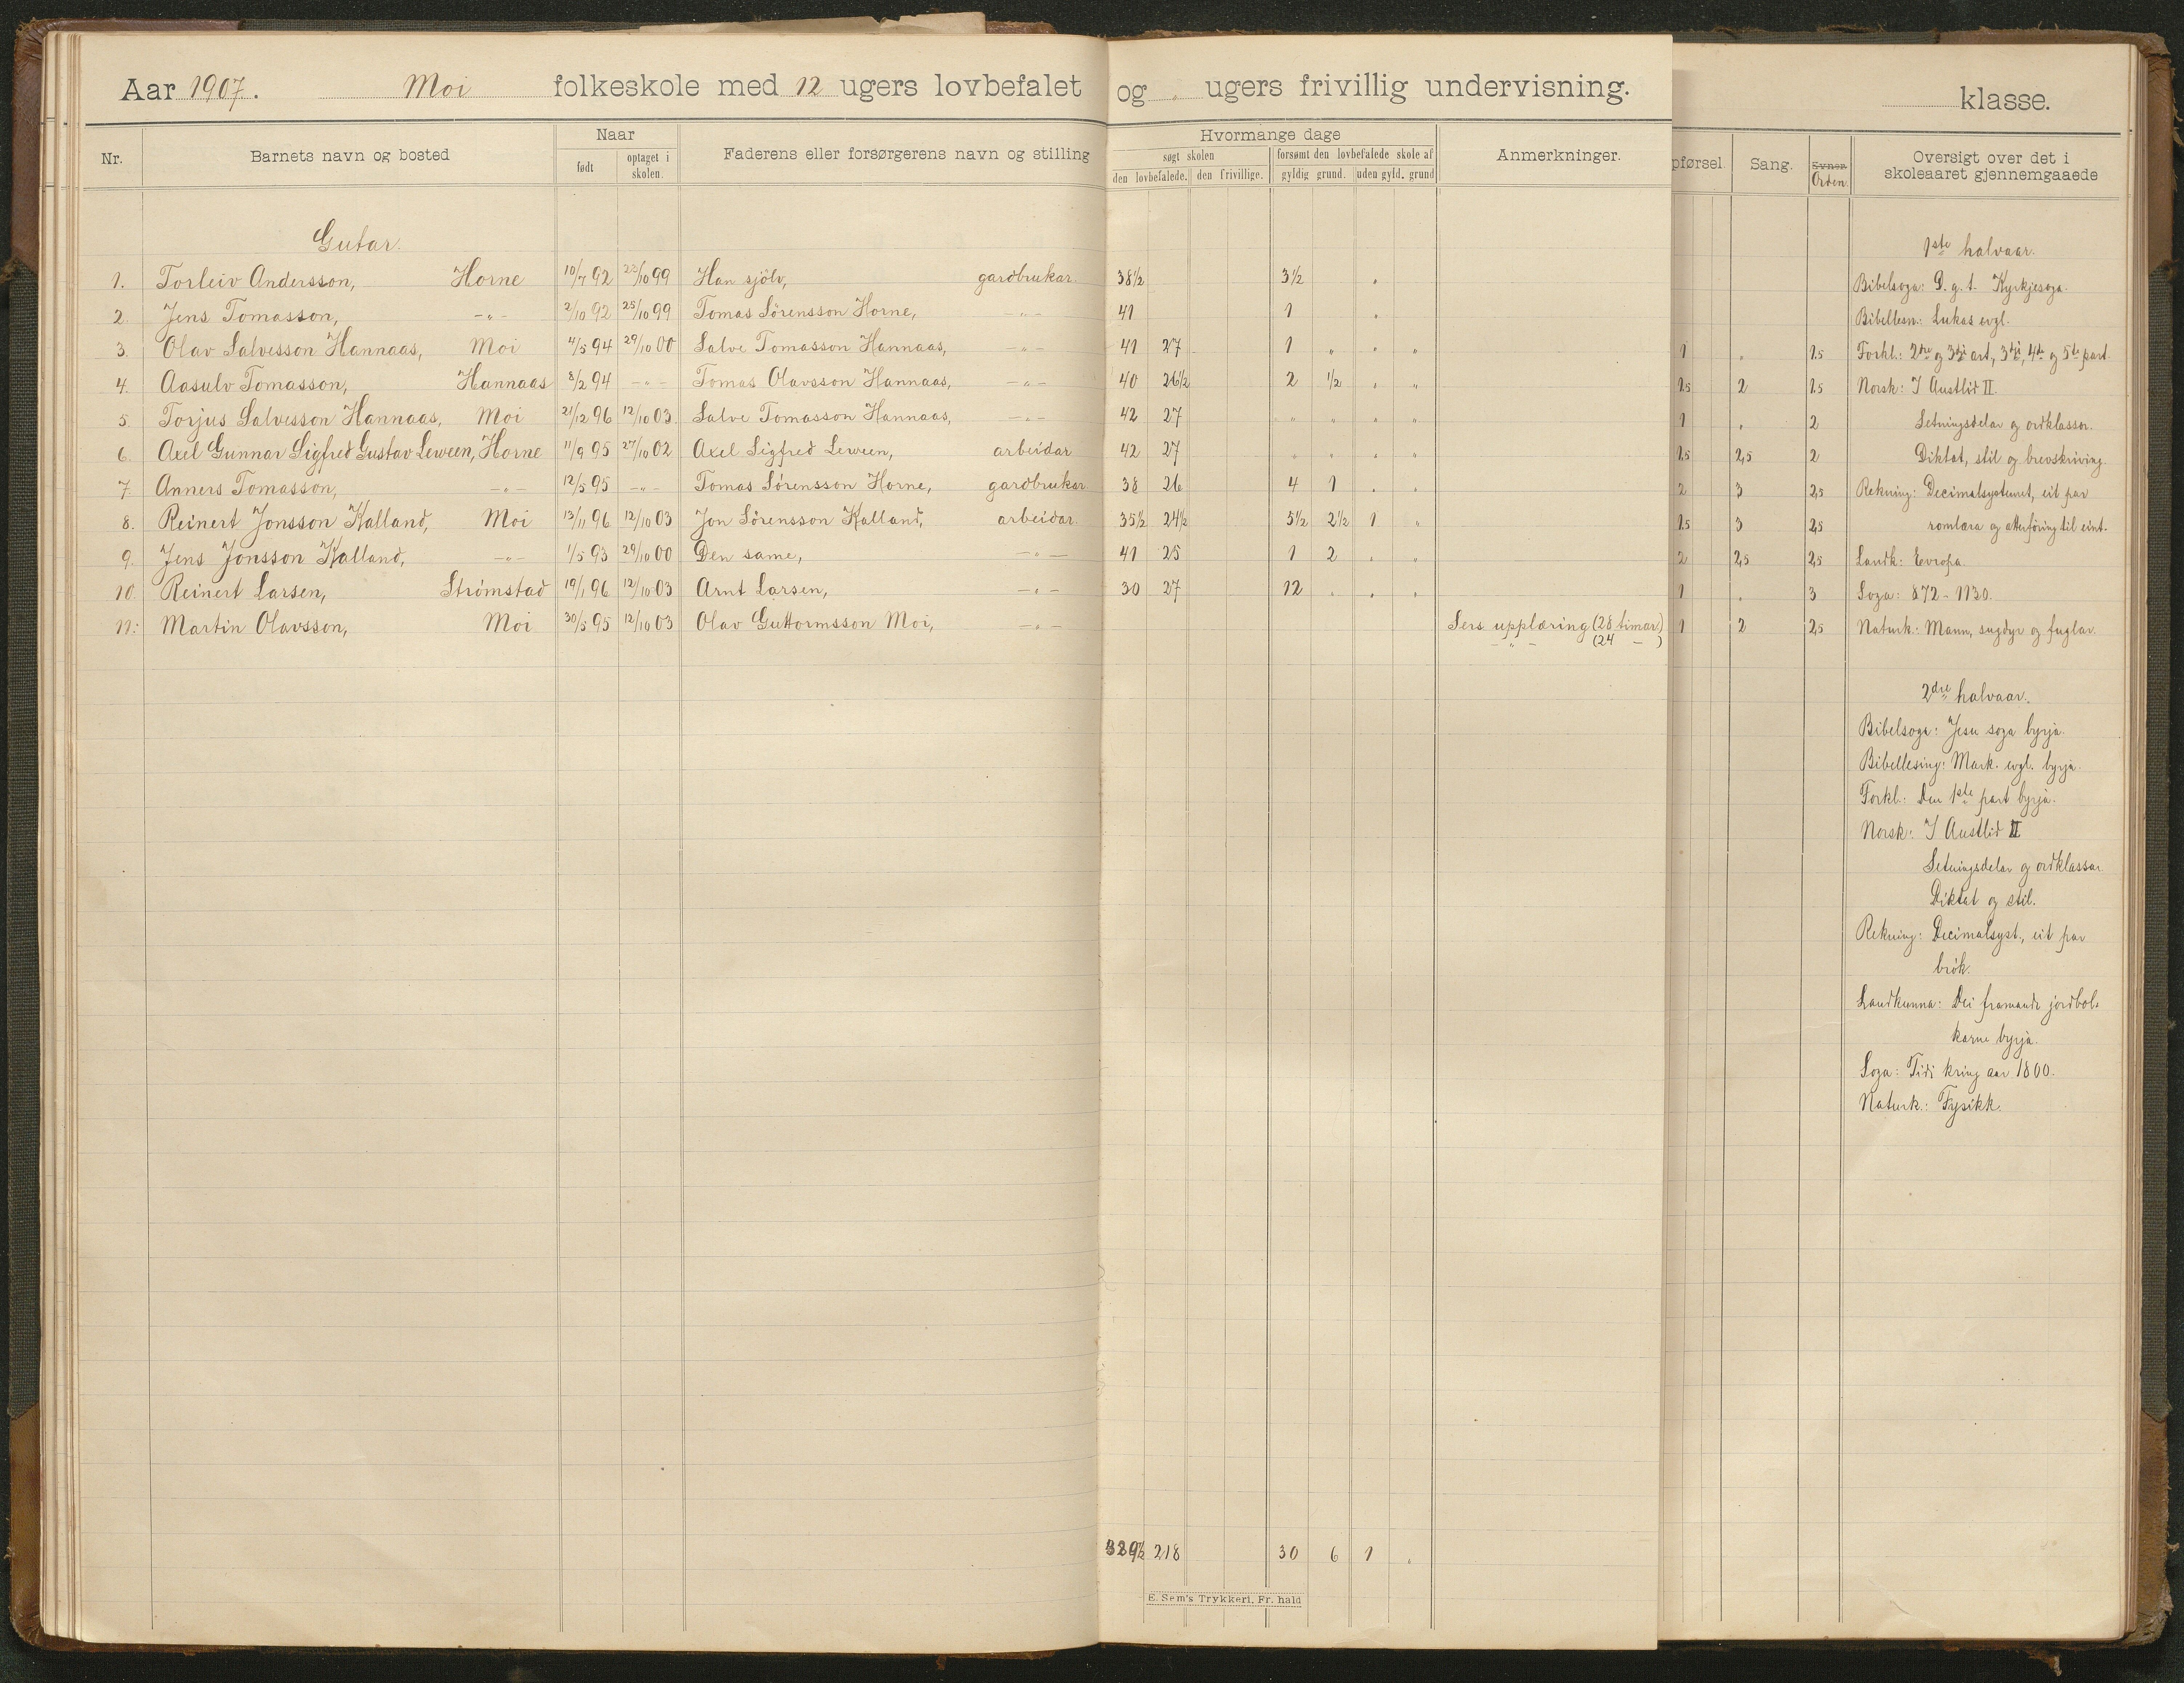 Aar 1907. Moi folkeskole med 12 ugers lovbefalet og " ugers frivillig undervisning.
klasse.
Nr. Barnets navn og bosted Naar født optaget i skolen. Faderens eller forsørgerens navn og stilling
Hvormange dage søgt skolen den lovbefalede. den frivillige. forsømt den lovbefalede skole af gyldig grund. uden gyld. grund Anmerkninger.
pførsel. Sang. Orden. Oversigt over det i skoleaaret gjennemgaaede
Gutar.
1. Torleiv Andersson, Horne 10/7 92 23/10 99 Han sjölv, gardbrukar. 38½ 3½ "
2. Jens Tomasson, -"- 2/10 92 25/10 99 Tomas Sörensson Horne, -"- 41 1 "
3. Olav Salvesson Hannaas, Moi 4/5 94 29/10 00 Salve Tomasson Hannaas, -"- 41 27 1 " " " 1 " 1.5
4. Aasulv Tomasson, Hannaas 8/2 94 -"- Tomas Olavsson Hannaas, -"- 40 26½ 2 ½ " " 1.5 2 1.5
5. Torjus Salvesson Hannaas, Moi 21/12 96 12/10 03. Salve Tomasson Hannaas, -"- 42 27 " " " " 1 " 2
6. Axel Gunnar Sigfred Gustav Leween, Horne 11/9 95 27/10 02 Axel Sigfred Leween, arbeidar 42 27 " " " " 1.5 2,5 2
7. Anners Tomasson, -"- 12/5 95 -"- Tomas Sörensson Horne, gardbrukar. 38 26 4 1 " " 2 3 2,5
8. Reinert Jonsson Kalland, Moi 13/11 96 12/10 03 Jon Sörensson Kalland, arbeidar. 35½ 24½ 5½ 2½ 1 " 1.5 3 2,5
9. Jens Jonsson Kalland, -"- 1/5 93 29/10 00 Den same, -"- 41 25 1 2 " " 2 2,5 2,5
10. Reinert Larsen, Strömstad 19/1 96 12/10 03 Arnt Larsen, -"- 30 27 12 " " " 1 " 3
11. Martin Olavsson, Moi 30/5 95 12/10 03 Olav Guttormsson Moi, -"- Sers upplæring (28 timar) 1 2 2,5
-"- (24 - )
1ste halvaar.
Bibelsoga: D. g. t. Kyrkjesoga.
Bibellesn.: Lukas evgl.
Forkl.: 2dre og 3dji art, 3dji, 4de og 5te part.
Norsk: I Austlid II.
Setningsdelar og ordklassor.
Diktat, stil og brevskriving.
Rekning: Decimalsystemet, eit par
romlæra og atterföring til eint.
Landk: Evropa.
Soga: 872 - 1130.
Naturk.: Mann, sugdyr og fuglar.
2dre halvaar.
Bibelsoga: Jesu soga byrja.
Bibellesing: Mark. evgl. byrja.
Forkl.: Den 1ste part byrja.
Norsk: I Austlid II
Setningsdelar og ordklassar
Diktat og stil.
Rekning: Decimalsyst., eit par
brök.
Landkunna: Dei framande jordbol-
karne byrja.
Soga: Tidi kring aar 1800.
Naturk.: Fysikk.
218 30 6 1 "
E. Sem's Trykkeri, Fr. hald